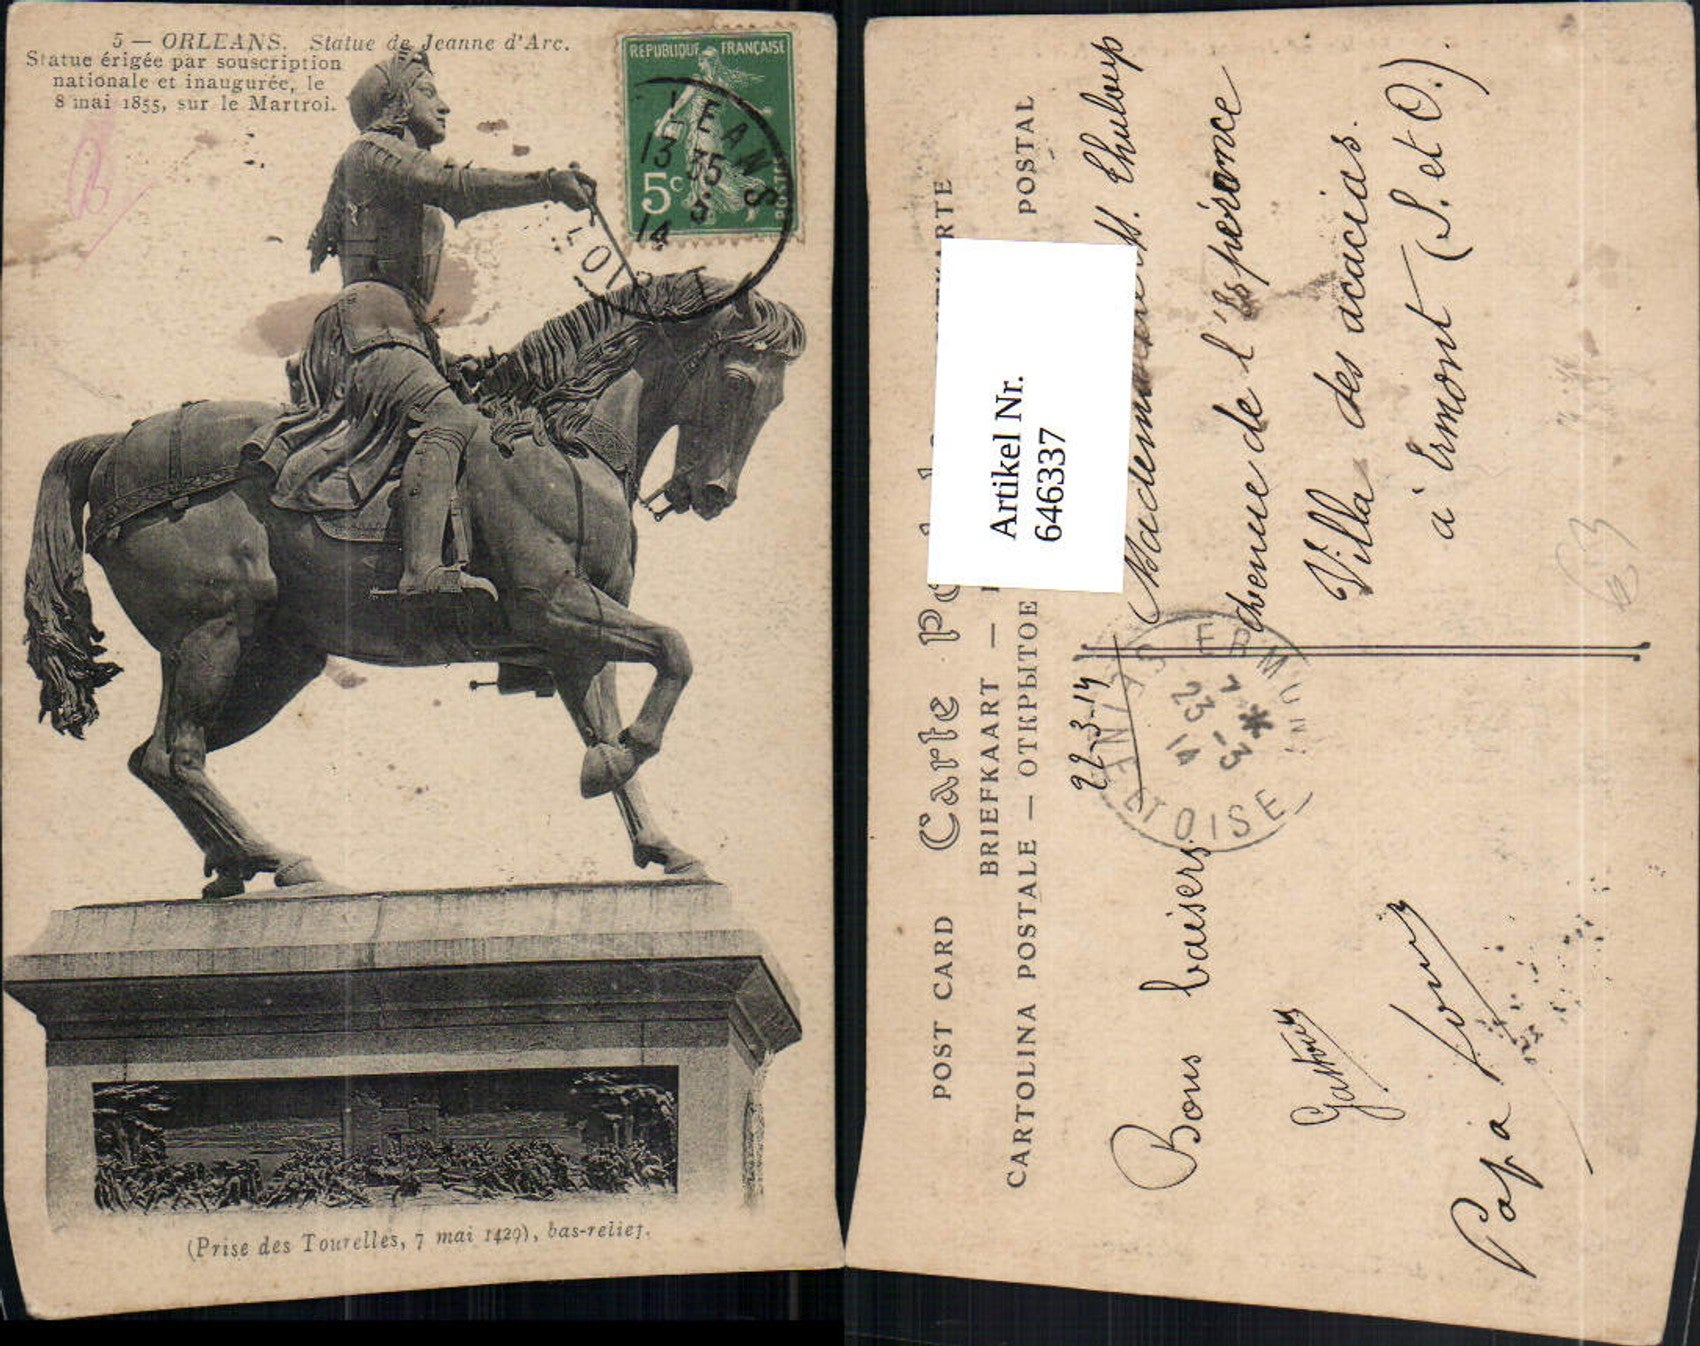 5 — ORLEANS. Statue de Jeanne d'Arc.
Statue érigée par souscription
nationale et inaugurée, le
8 mai 1855, sur le Martroi.
REPUBLIQUE FRANÇAISE
5c
POSTES
LEANS
13 35
3
14
LOIRET
(Prise des Tourelles, 7 mai 1429), bas-relief.
POST CARD Carte Po
BRIEFKAART —
CARTOLINA POSTALE — ОТКРЫТОЕ
POSTAL
Artikel Nr.
646337
22-3-14
Bons baisers
Gaston
Papa Louis
Mademoiselle M.
Avenue de l'Espérance
Villa des acacias.
à Ermont (S. et O.)
ERMONT
7 *
23 -3
14
SEINE ET OISE